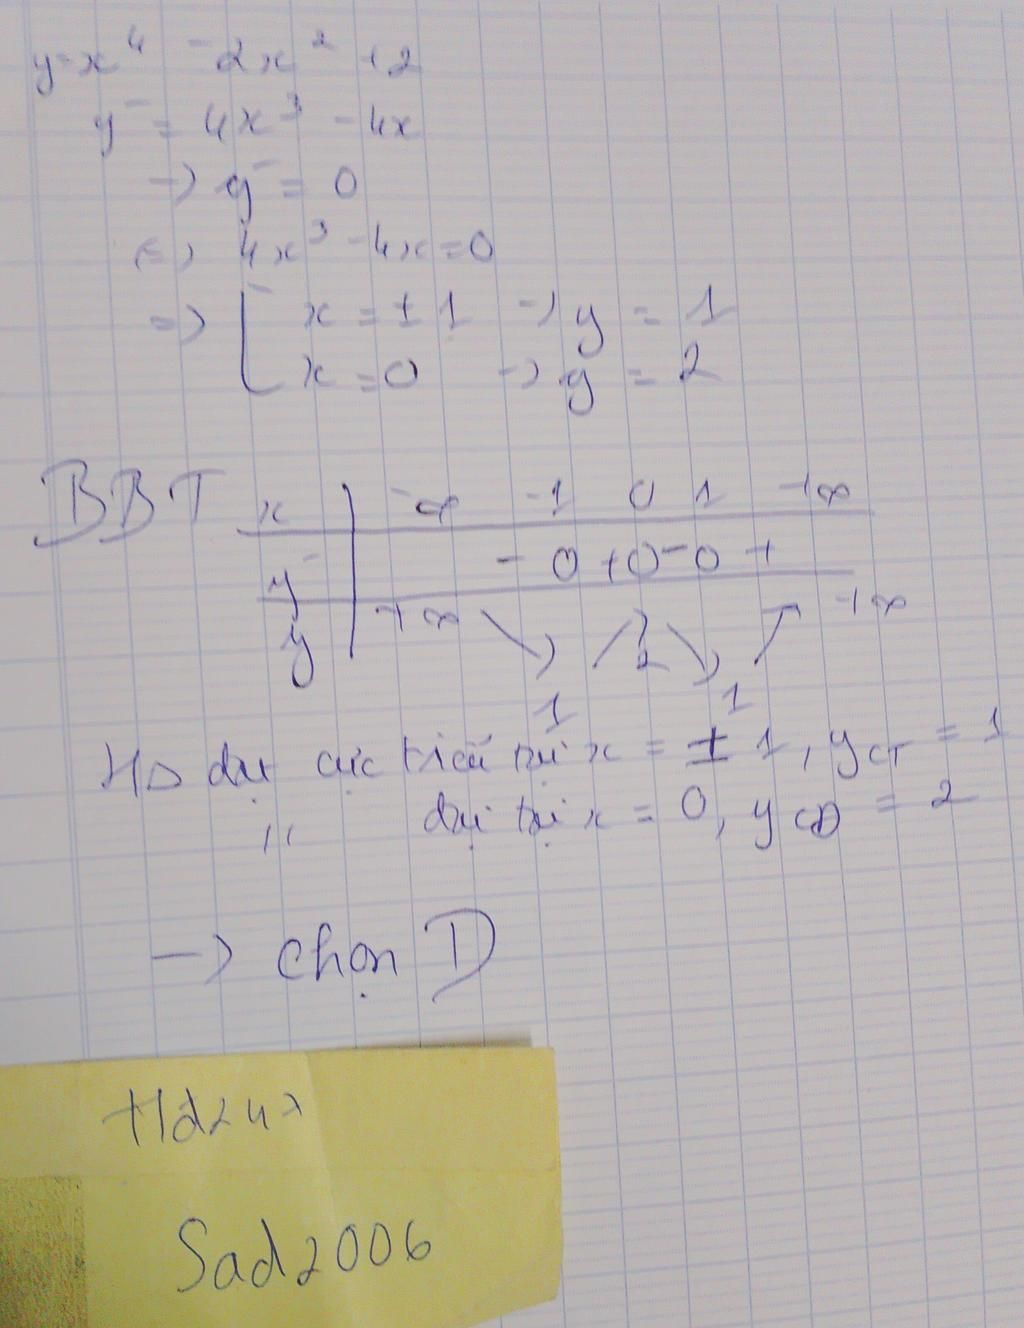 y = x⁴ - 2x² + 2
y' = 4x³ - 4x
→ y' = 0
⇔ 4x³ - 4x = 0
⇒ [ x = ± 1 → y = 1
x = 0 → y = 2
BBT x | -∞ -1 0 1 +∞
y' | - 0 + 0 - 0 +
y | +∞ ↘ 1 ↗ 2 ↘ 1 ↗ +∞
HS đạt cực tiểu tại x = ± 1, yCT = 1
" đại tại x = 0, yCĐ = 2
→ chọn D
Hd247
Sad2006